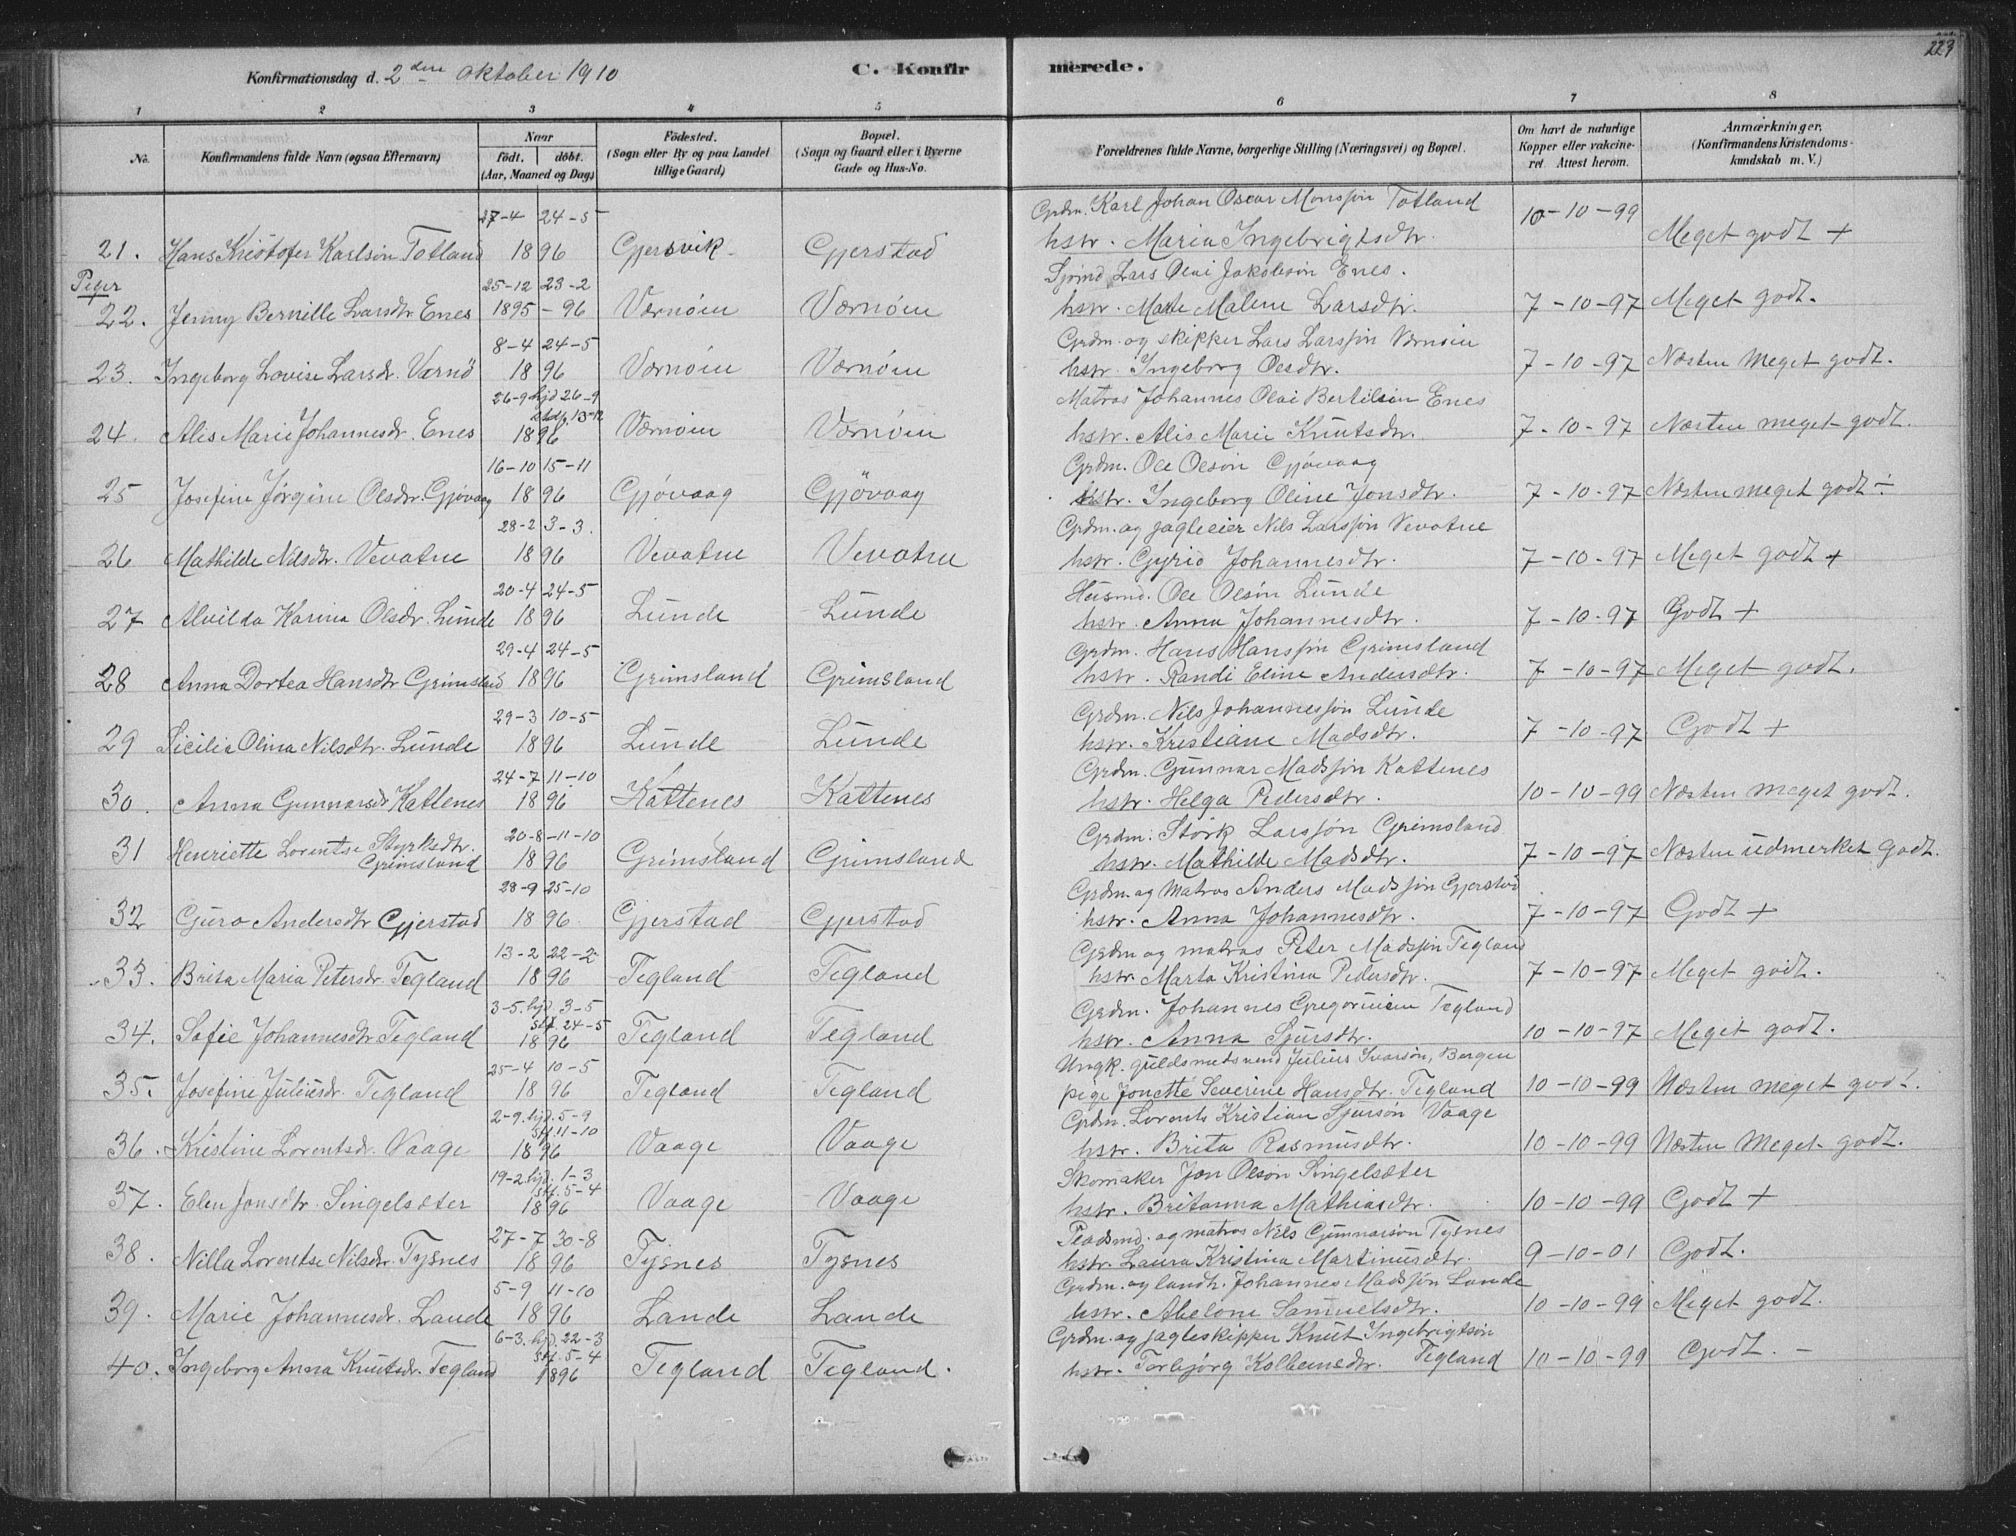 223
Konfirmationsdag d. 2den oktober 1910 C. Konfirmerede.
1 2 3 4 5 6 7 8
No. Konfirmandens fulde Navn (ogsaa Efternavn) Naar født. døbt. (Aar, Maaned og Dag) Fødested. (Sogn eller By og paa Landet tillige Gaard) Bopæl. (Sogn og Gaard eller i Byerne Gade og Hus-No. Forældrenes fulde Navne, borgerlige Stilling (Næringsvei) og Bopæl. Om havt de naturlige Kopper eller vakcineret. Attest herom. Anmærkninger. (Konfirmandens Kristendomskundskab m. V.)
27-4 24-5 Grdm. Karl Johan Oscar Monssøn Totland 10-10-99
21. Hans Kristofer Karlsøn Totland 1896 Gjersvik Gjerstad hstr. Maria Ingebrigtsdtr. Meget godt +
Piger 25-12 23-2 Lars Olai Jakobsøn Enes.
22. Jenny Bernille Larsdtr Enes 1895-96 Værnøen Værnøen hstr. Malene Larsdtr. 7-10-97 Meget godt.
8-4 24-5 Grdm. og skipper Lars Larssøn Værnøen
23. Ingeborg Lovise Larsdr. Værnö 1896 Værnøen Værnøen hstr. Ingeborg Olsdtr. 7-10-97 Næsten meget godt.
26-9 hjd 26-9 stadf. 13-12 Matros Johannes Olai Bertilsen Enes
24. Alis Marie Johannesdr. Enes 1896 Værnøen Værnøen hstr. Alis Marie Knutsdtr. 7-10-97 Næsten meget godt.
16-10 15-11 Grdm. Ole Olsøn Gjøvaag
25 Josefine Jørgine Olsdtr. Gjøvaag 1896 Gjøvaag Gjøvaag hstr. Ingeborg Oline Jonsdtr. 7-10-97 Næsten meget godt ÷
28-2 3-3. Grdm. og jagteeier Nils Larssøn Vevatne
26 Mathilde Nilsdtr. Vevatne 1896 Vevatne Vevatne hstr. Gyrid Johannesdtr. 7-10-97 Meget godt +
20-4 24-5 Husmd. Ole Olsøn Lunde
27 Alvilda Karina Olsdr. Lunde 1896 Lunde Lunde hstr. Anna Johannesdtr. 7-10-97 Godt +
29-4 24-5 Grdm. Hans Hanssøn Grimsland
28 Anna Dortea Hansdtr Grimsland 1896 Grimsland Grimsland hstr. Randi Eline Andersdtr. 7-10-97 Meget godt.
29-3 10-5 Grdm. Nils Johannessøn Lunde
29 Sicilia Olina Nilsdtr. Lunde 1896 Lunde Lunde hstr. Kristiane Madsdtr. 7-10-97 Godt +
24-7 11-10 Grdm. Gunnar Madssøn Kattenes
30. Anna Gunnarsdr Kattenes 1896 Kattenes Kattenes hstr. Helga Pedersdtr. 10-10-99 Næsten meget godt.
20-8-11-10 Grdm. Størk Larssøn Grimsland
31 Henriette Lorentse Styrksdtr. Grimsland 1896 Grimsland Grimsland hstr. Mathilde Madsdtr. 7-10-97 Næsten udmerket godt.
28-9 25-10 Grdm. og matros Anders Madssøn Gjerstad
32 Guro Andersdtr Gjerstad 1896 Gjerstad Gjerstad hstr. Anna Johannesdtr. 7-10-97 Godt +
13-2 22-2 Grdm og matros Peter Madssøn Tegland
33. Brita Maria Petersdr. Tegland 1896 Tegland Tegland hstr. Marta Kristina Pedersdtr. 7-10-97 Meget godt.
3-5. hjd. 3-5 Stf. 24-5 Grdm. Johannes Gregoriusen Tegland
34. Sofie Johannesdtr Tegland 1896 Tegland Tegland hstr. Anna Sjursdtr. 10-10-97 Meget godt.
25-4 10-5 Ungk. guldsmedsvend Julius Ivarsøn, Bergen
35. Josefine Juliusdr. Tegland 1896 Tegland Tegland pige Jonette Severine Hansdtr. Tegland 10-10-99 Næsten meget godt.
2-9. hjd. 5-9 Stf. 11-10 Grdm. Lorents Kristian Sjursøn Vaage
36. Kristine Lorentsdr. Vaage 1896 Vaage Vaage hstr. Brita Rasmusdtr. 10-10-99 Næsten meget godt.
19-2. hjd. 1-3 Stf. 5-4 Skomaker Jon Olsøn Singelsæter
37. Elen Jonsdtr. Singelsæter 1896 Vaage Vaage hstr. Britanna Mathiasdtr. 10-10-99 Godt +
27-7 30-8 Pladsmd. og matros Nils Gunnarsøn Tysnes
38. Nilla Lorentse Nilsdr. Tysnes 1896 Tysnes Tysnes hstr. Laura Kristina Martinusdtr. 9-10-01 Godt.
5-9 11-10 Grdm. og landh. Johannes Madssøn Lande
39. Marie Johannesdr. Lande 1896 Lande Lande hstr. Abelone Samuelsdtr. 10-10-99 Meget godt.
6-3. hjd. 22-3 Stf. 5-4 Grdm. og jagteskipper Knut Ingebrigtsøn
40. Ingeborg Anna Knutsdr. Tegland 1896 Tegland Tegland. hstr. Torbjørg Kolbensdtr. Tegland 10-10-99 Godt. -